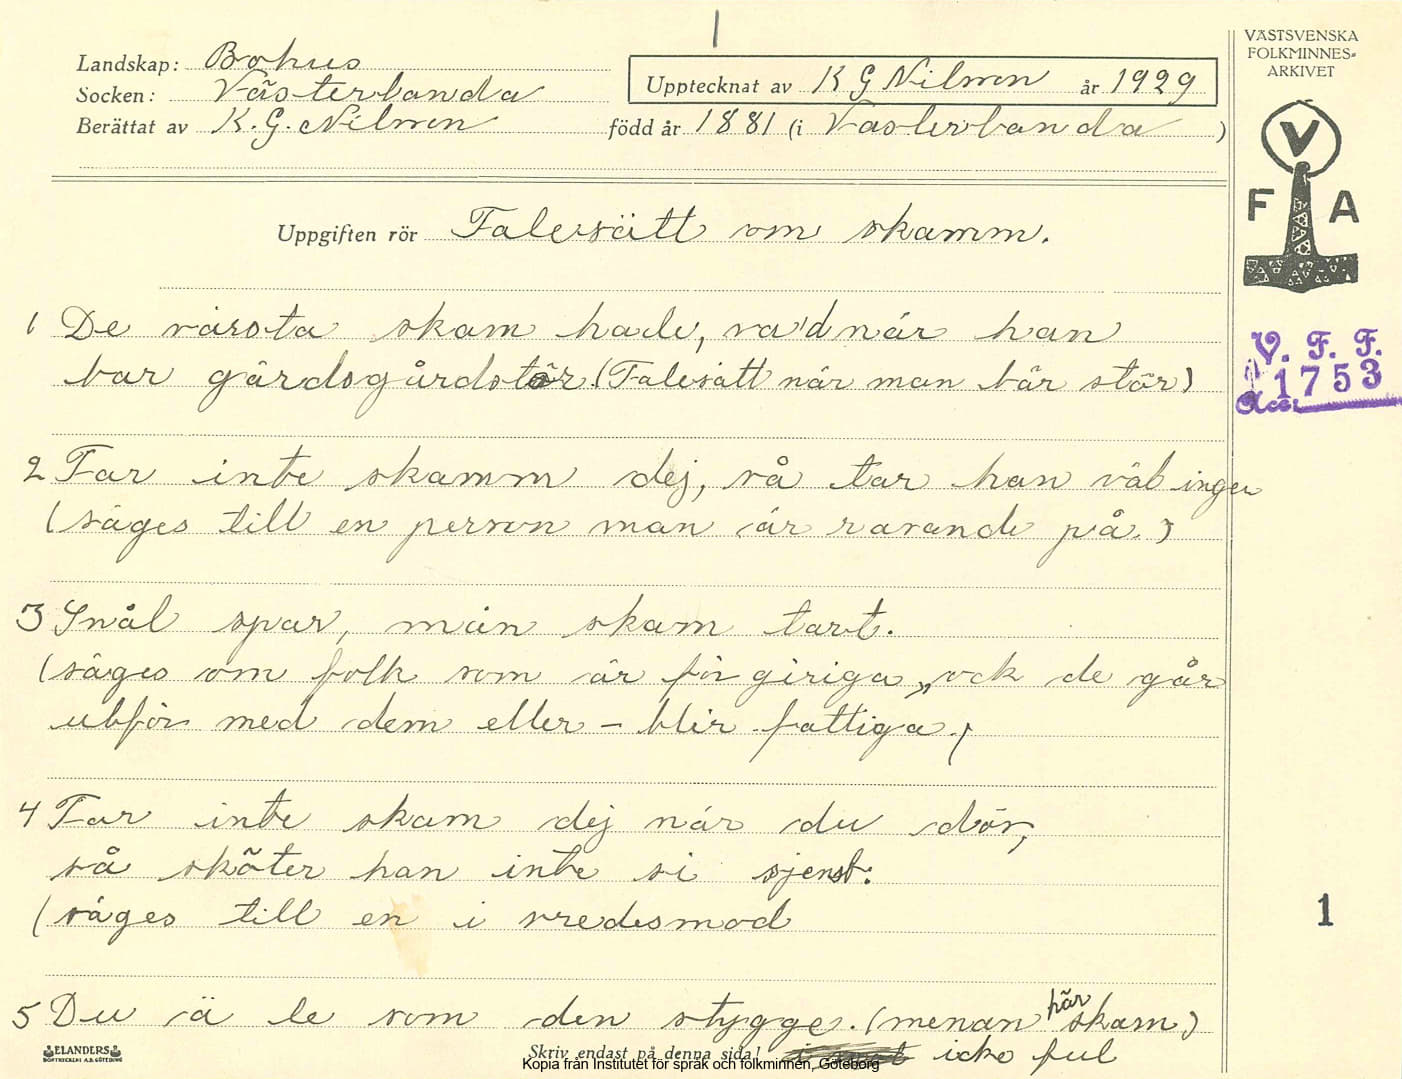 1
Landskap: Bohus
Socken: Västerlanda
Berättat av K.G. Nilsson född år 1881 (i Västerlanda)
Upptecknat av K G Nilsson år 1929
VÄSTSVENSKA
FOLKMINNES-
ARKIVET
V
F A
Uppgiften rör Talesätt om skamm.
1 De värsta skam hade, va' d när han
bar gärdsgårdstör. (Talesätt när man bär stör)
V. F. F.
1753
Acc.
2 Tar inte skamm dej, så tar han väl ingen
(säges till en person man är rasande på.)
3 Snål spar, män skam tart.
(säges om folk som är för giriga, ock de går
utför med dem eller – blir fattiga.)
4 Tar inte skam dej när du dör,
så sköter han inte si sjenst:
(säges till en i vredesmod
1
5 Du ä le som den stygge. (menan här skam)
icke ful
ELANDERS
BOKTRYCKERI A.B. GÖTEBORG
Skriv endast på denna sida!
Kopia från Institutet för språk och folkminnen, Göteborg